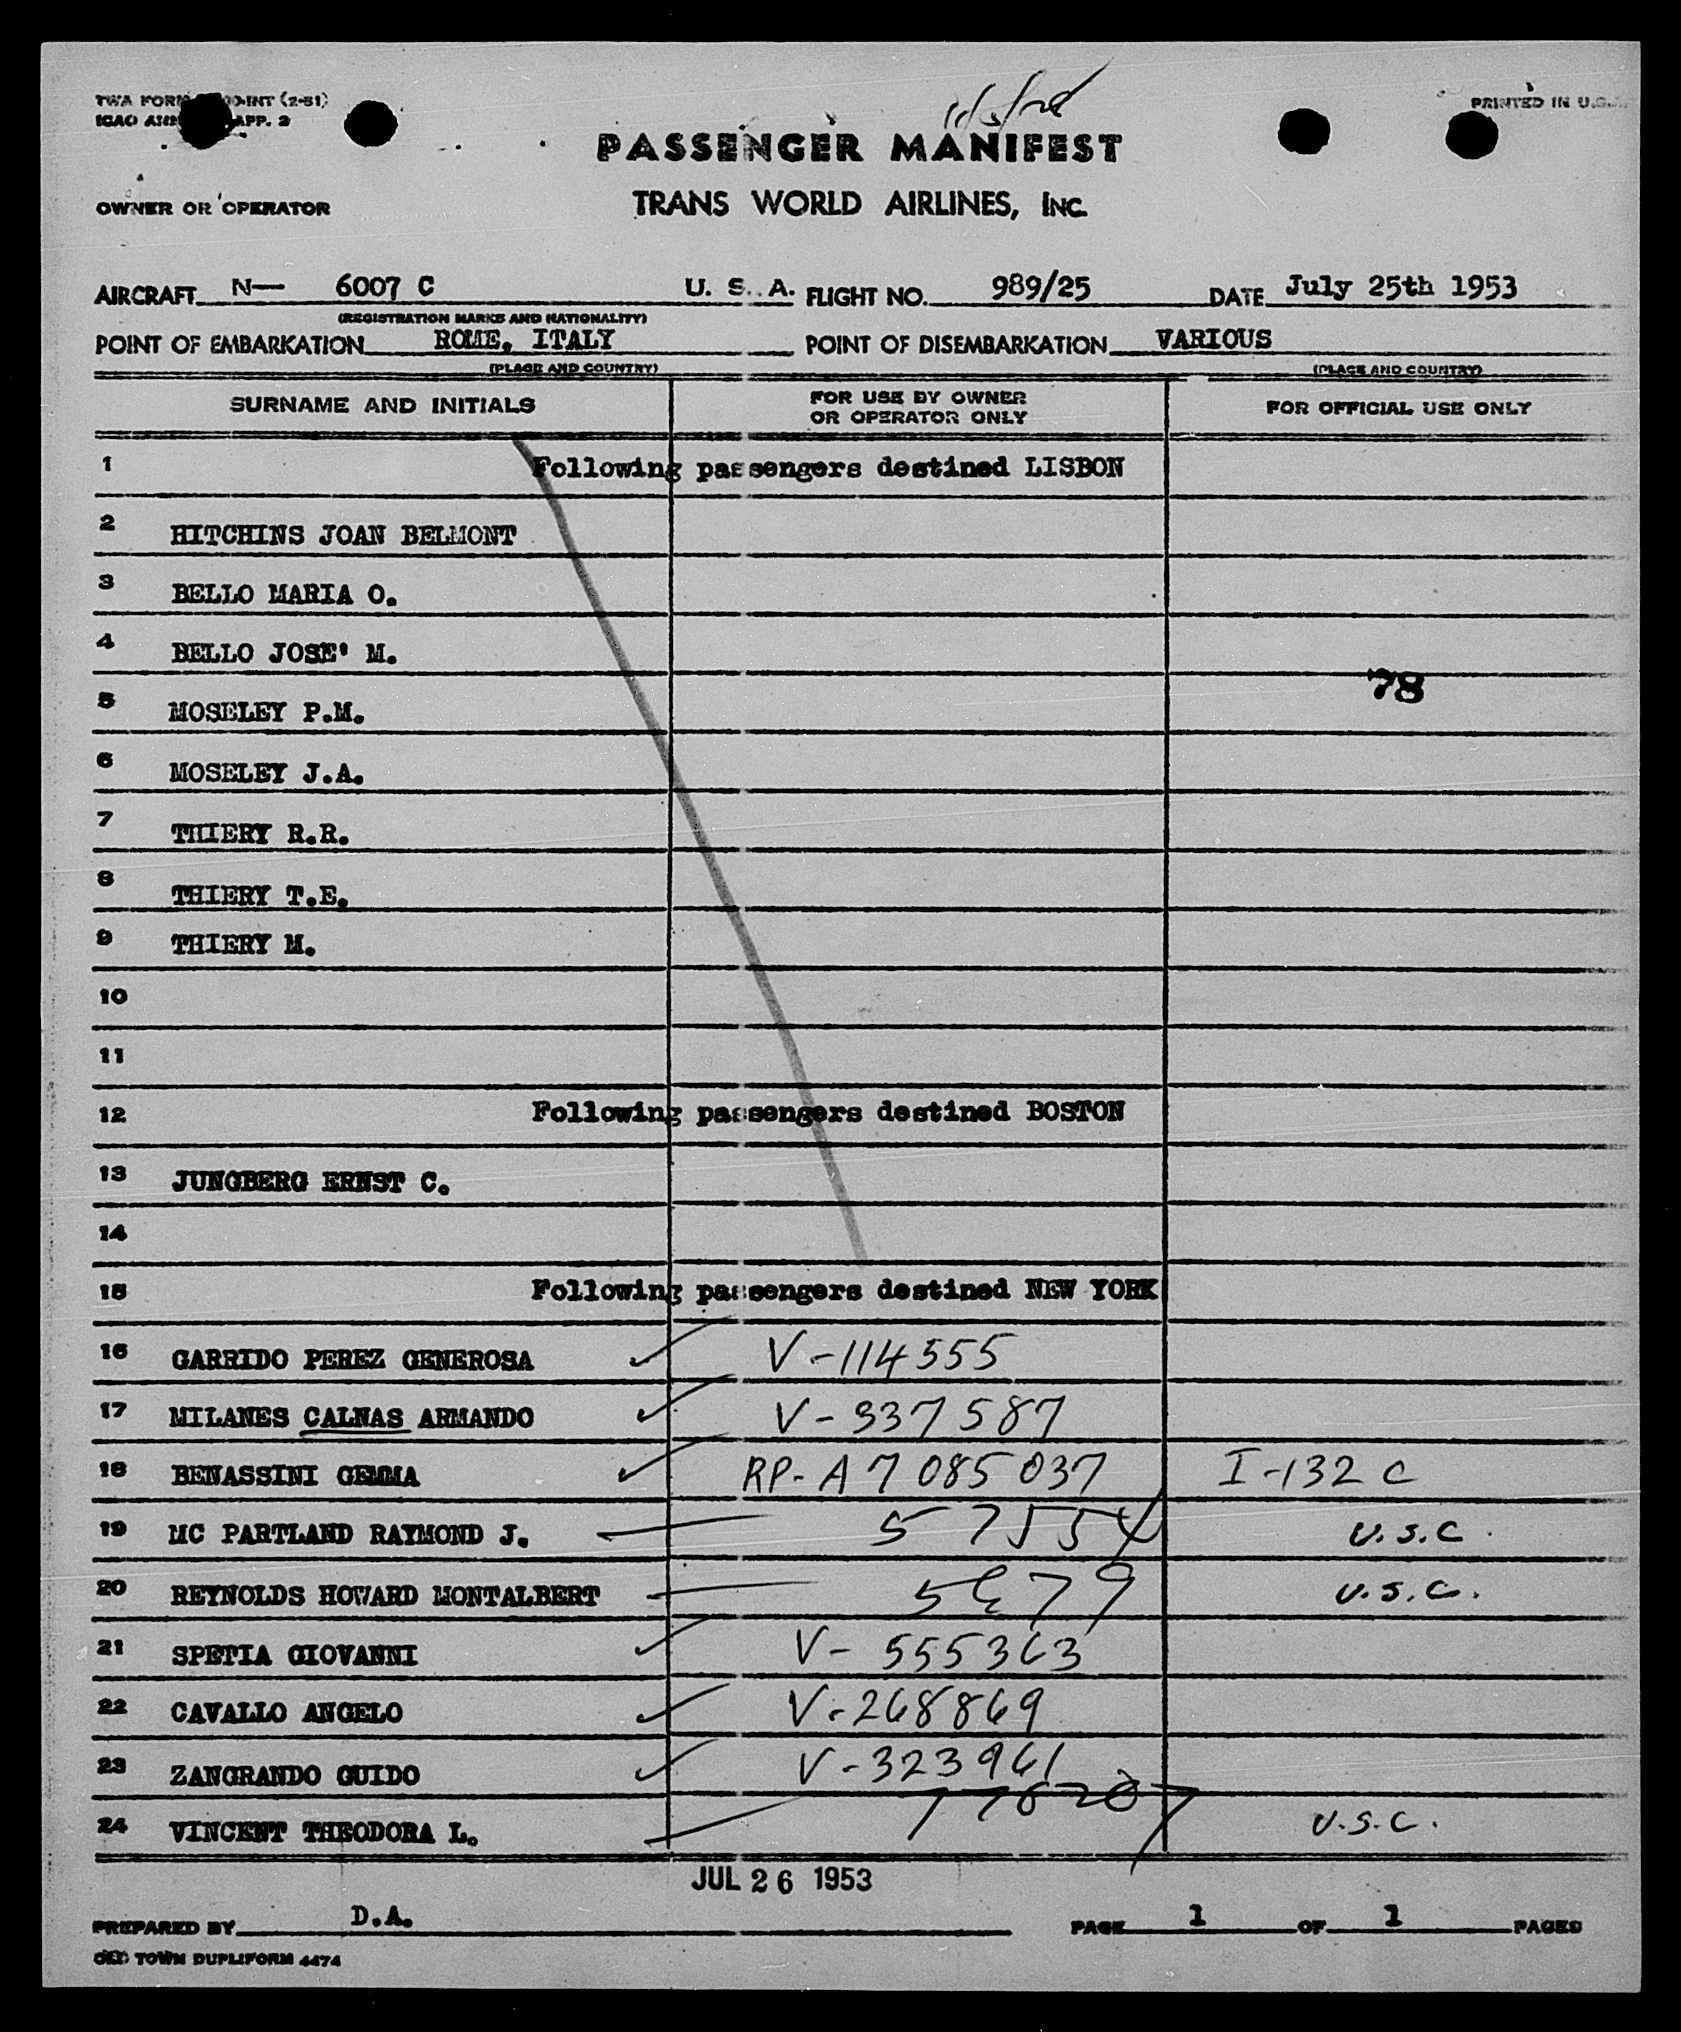 TWA FORM INT (2-51)
ICAO ANN APP. 2
PRINTED IN U.S.
PASSENGER MANIFEST
OWNER OR OPERATOR
TRANS WORLD AIRLINES, INC.
AIRCRAFT N— 6007 C U. S. A. FLIGHT NO. 989/25 DATE July 25th 1953
(REGISTRATION MARKS AND NATIONALITY)
POINT OF EMBARKATION ROME, ITALY POINT OF DISEMBARKATION VARIOUS
(PLACE AND COUNTRY) (PLACE AND COUNTRY)
SURNAME AND INITIALS FOR USE BY OWNER OR OPERATOR ONLY FOR OFFICIAL USE ONLY
1 Following passengers destined LISBON
2 HITCHINS JOAN BELMONT
3 BELLO MARIA O.
4 BELLO JOSE' M.
78
5 MOSELEY P.M.
6 MOSELEY J.A.
7 THIERY R.R.
8 THIERY T.E.
9 THIERY M.
10
11
12 Following passengers destined BOSTON
13 JUNGBERG ERNST C.
14
15 Following passengers destined NEW YORK
16 GARRIDO PEREZ GENEROSA V-114555
17 MILANES CALNAS ARMANDO V-337587
18 BENASSINI GEMMA RP-A7 085 037 I-132 C
19 MC PARTLAND RAYMOND J. 57554 U.S.C.
20 REYNOLDS HOWARD MONTALBERT U.S.C.
21 SPETIA GIOVANNI V-555363
22 CAVALLO ANGELO V-268869
23 ZANGRANDO GUIDO V-323961
24 VINCENT THEODORA L. U.S.C.
JUL 26 1953
PREPARED BY D.A. PAGE 1 OF 1 PAGES
OLD TOWN DUPLIFORM 4474